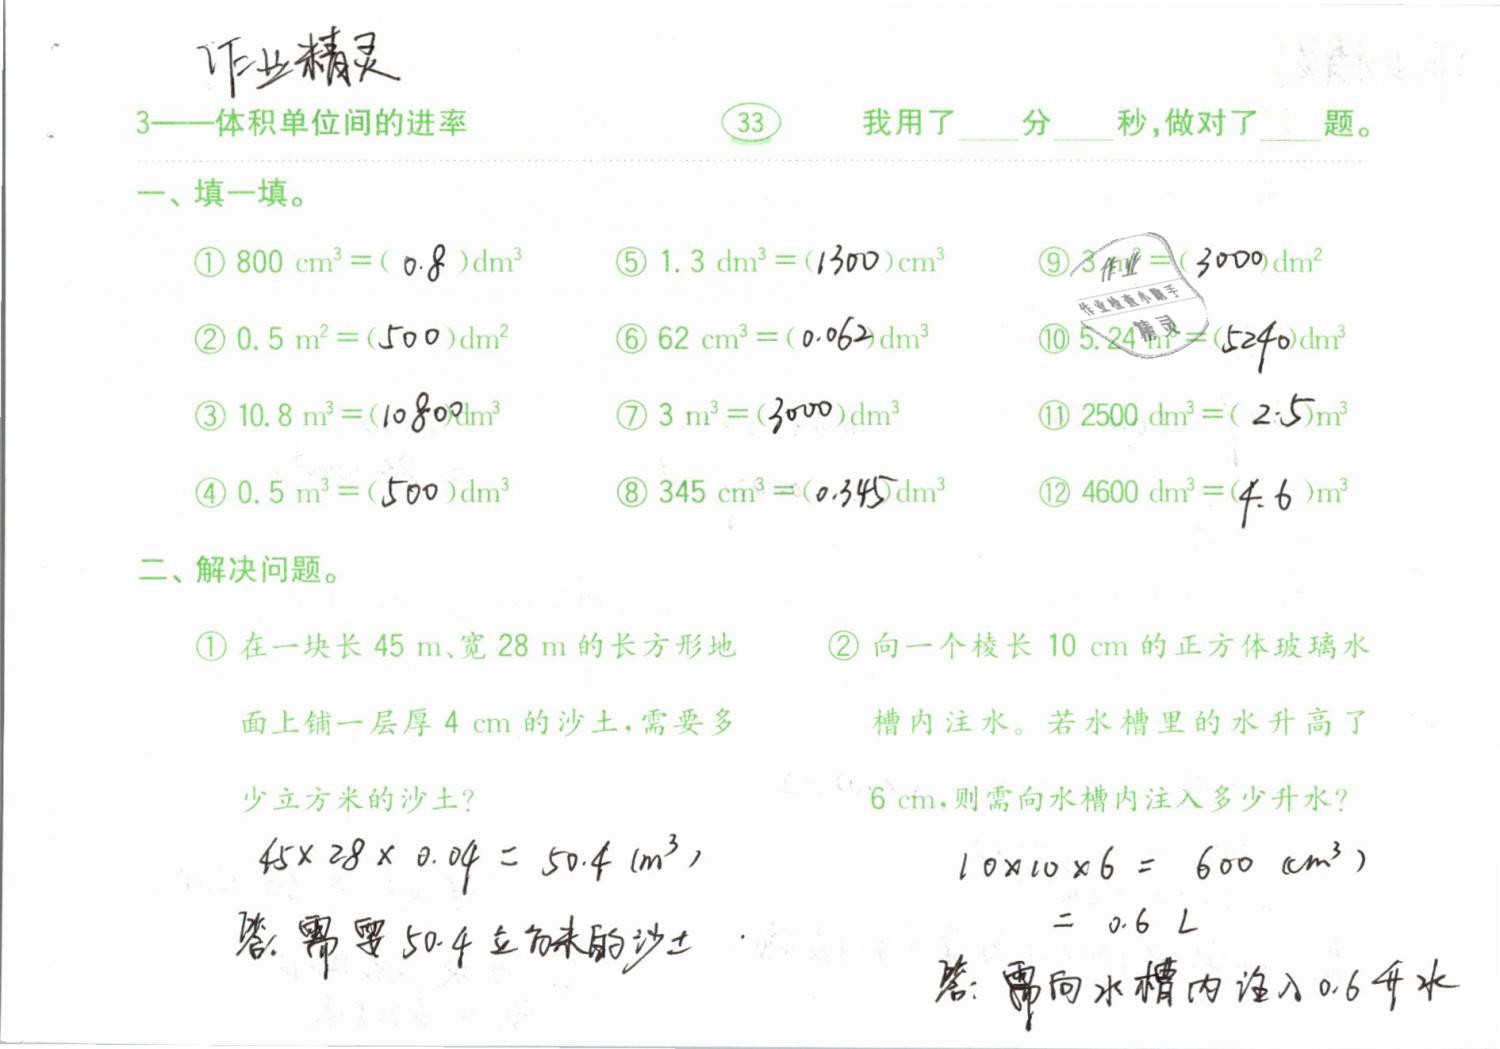 作业精灵
3——体积单位间的进率 33 我用了____分____秒,做对了____题。
一、填一填。
① 800 cm³=( 0.8 )dm³ ⑤ 1.3 dm³=(1300)cm³ ⑨ 3 m²=(3000)dm²
② 0.5 m²=(500)dm² ⑥ 62 cm³=(0.062)dm³ ⑩ 5.24 m³=(5240)dm³
③ 10.8 m³=(10800)dm³ ⑦ 3 m³=(3000)dm³ ⑪ 2500 dm³=( 2.5)m³
④ 0.5 m³=(500)dm³ ⑧ 345 cm³=(0.345)dm³ ⑫ 4600 dm³=(4.6)m³
作业
作业检查小助手
精灵
二、解决问题。
① 在一块长 45 m、宽 28 m 的长方形地
面上铺一层厚 4 cm 的沙土,需要多
少立方米的沙土?
45×28×0.04=50.4(m³)
答:需要50.4立方米的沙土
② 向一个棱长 10 cm 的正方体玻璃水
槽内注水。若水槽里的水升高了
6 cm,则需向水槽内注入多少升水?
10×10×6=600(cm³)
=0.6 L
答:需向水槽内注入0.6升水